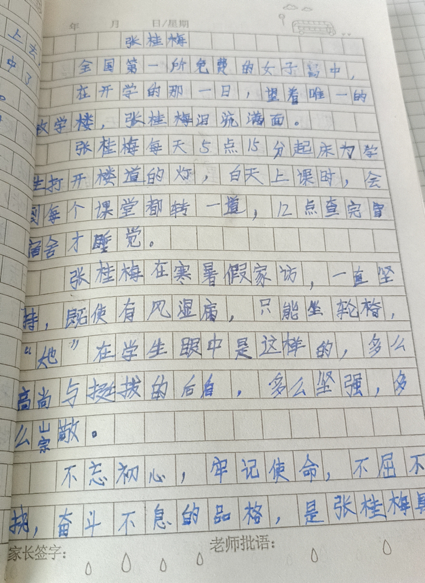 年 月 日/星期
张桂梅
上
全国第一所免费的女子高中,
中了
在开学的那一日,望着唯一的
教学楼,张桂梅泪流满面。
张桂梅每天5点15分起床为学
生打开楼道的灯,白天上课时,会
到每个课堂都转一遭,12点查完
宿舍才睡觉。
张桂梅在寒暑假家访,一直坚
持,既使有风湿病,只能坐轮椅,
“她”在学生眼中是这样的,多么
高尚与挺拔的,多么坚强,多
么崇敬。
不忘初心,牢记使命,不屈不
挠,奋斗不息的品格,是张桂梅
家长签字: 老师批语: